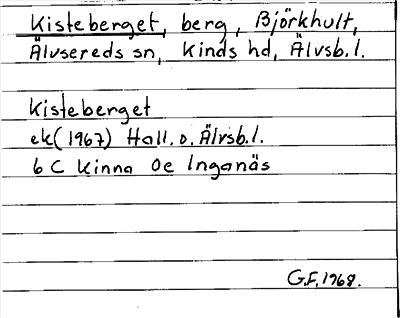 Kisteberget, berg, Björkhult,
Älvsereds sn, Kinds hd, Älvsb.l.
Kisteberget
ek(1967) Hall. o. Älvsb.l.
6 C Kinna 0e Inganäs
G.F. 1968.